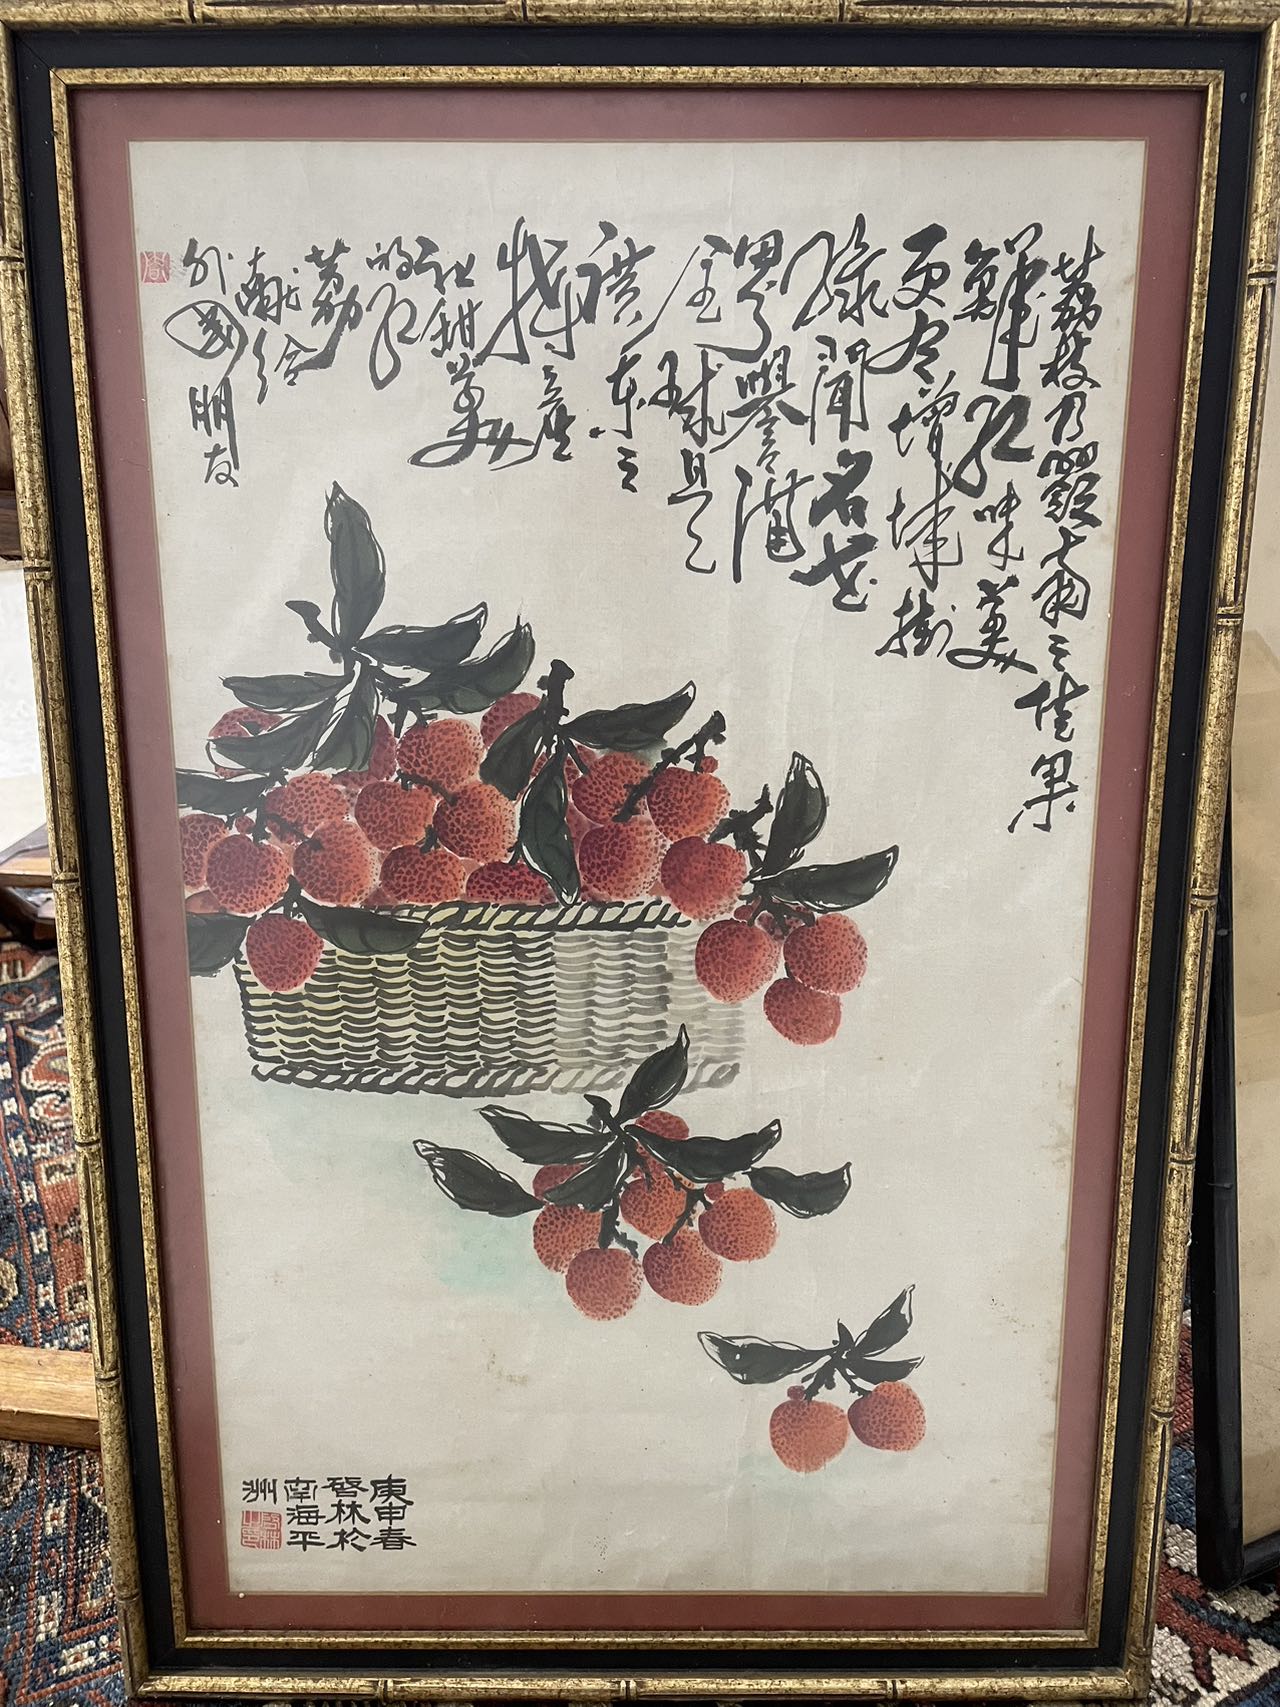 荔枝乃嶺南之佳果
鮮紅味美
更名增城掛
綠聞名世
界譽滿
全球是
祺東之
特產
把甜美
的紅
荔
獻給
外國朋友
庚申春
啓林於
南海平
洲
啓林